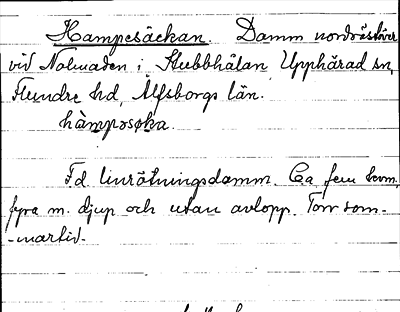 Hampesäckan. Damm nordväst över
vid Nolmaden i Stubbhålan Upphärad sn,
Flundre hd, Älfsborgs län.
hàmpəsøka.
Fd linrötningsdamm. Ca fem kvm,
fyra m. djup och utan avlopp. Torr som-
-martid.